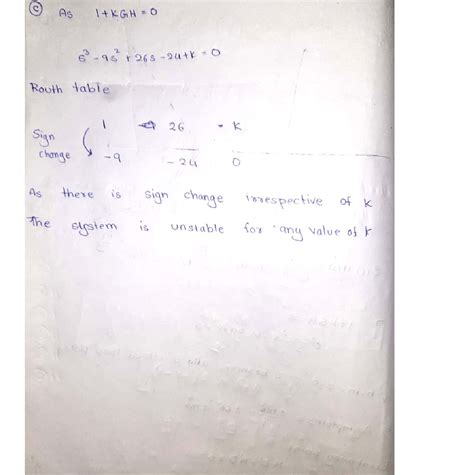 (c) As 1+KGH = 0
s³ - 9s² + 26s - 24+K = 0
Routh table
1 26 K
Sign
change
-9 -24 0
As there is sign change irrespective of K
The system is unstable for any value of K